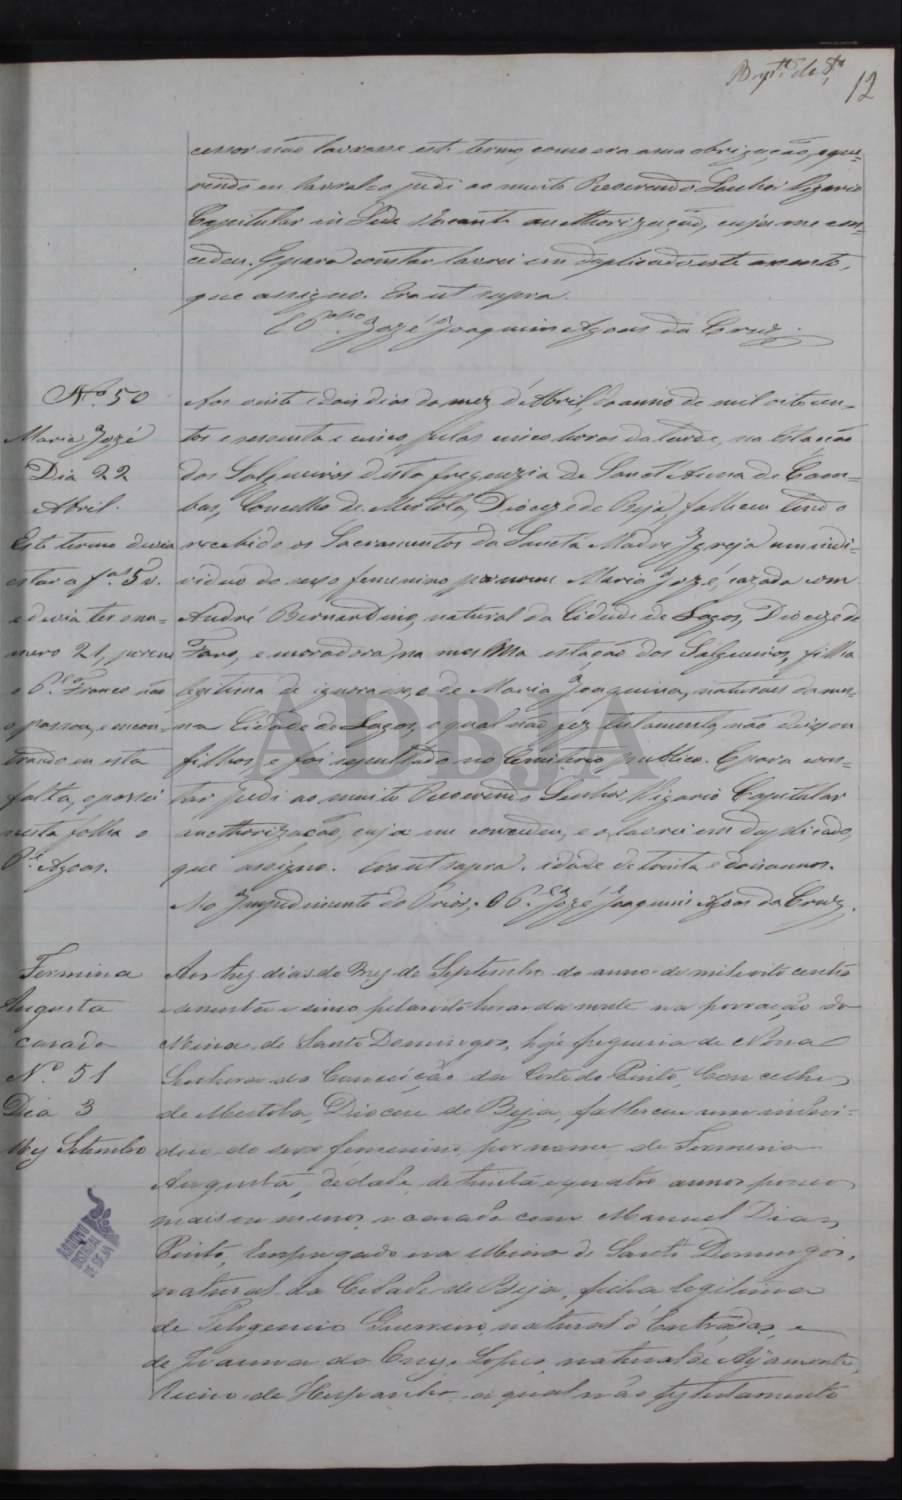 12
cessor não lavrasse este termo, como era a sua obrigação, e que-
rendo eu lavral-o pedi ao muito Reverendo Senhor Vigario
Capitular em Sede Vacante authorização, cuja me con-
cedeu. E para constar lavrei em duplicado este assento,
que assigno. Era ut supra.
José Joaquim Agoas da Cruz.
Nº 50
Maria José
Dia 22
Abril.
Este termo devia
estar a f.as 5 v.
e devia ter o nu-
mero 21, porem
o P.e Franco não
o passou, e encon-
trando eu esta
falta, o passei
nesta folha o
P.e Agoas.
Aos vinte e dois dias do mez d'Abril, do anno de mil oito cen-
tos e sessenta e cinco pelas cinco horas da tarde, na Estação
dos Salgueiros desta freguezia de Sanct'Anna de Cam-
bas, Concelho de Mertola, Diocese de Beja, falleceu tendo
recebido os Sacramentos da Sancta Madre Igreja um indi-
viduo do sexo femenino por nome Maria José, cazada com
André Bernardino, natural da Cidade de Lagos, Diocese de
Faro, e moradora, na mesma estação dos Salgueiros, filha
legitima de ignora-se, e de Maria Joaquina, naturaes da mes-
ma Cidade de Lagos, o qual não fez testamento, não deixou
filhos, e foi sepultado no Cemiterio publico. E para cons-
tar pedi ao muito Reverendo Senhor Vigario Capitular
authorização, cuja me concedeu, e o lavrei em duplicado,
que assigno. Era ut supra. idade de trinta e dois annos.
No Impedimento do Prior. O P.e José Joaquim Agoas da Cruz.
Fermina
Augusta
casada
N.º 51
Dia 3
Mez Setembro
Aos trez dias do Mez de Septembro do anno de mil oito centos
sessenta e sinco pelas oito horas da noute na povoação da
Mina de Santo Domingos, hoje freguesia de Nossa
Senhora da Conceição da Corte do Pinto, Concelho
de Mertola, Diocese de Beja, falleceu um indivi-
duo do sexo femenino por nome de Fermina
Augusta, de idade de trinta e quatro annos pouco
mais ou menos, e casada com Manuel Dias
Pinto, Empregado na Mina de Santo Domingos,
natural da Cidade de Beja, filha legitima
de Guerreiro, natural d'Entradas, e
de Joanna da Cruz Lopes, natural de Ayamonte,
Reino de Hespanha, a qual não fez testamento
ADBJA
ARQUIVO
DISTRITAL
DE BEJA